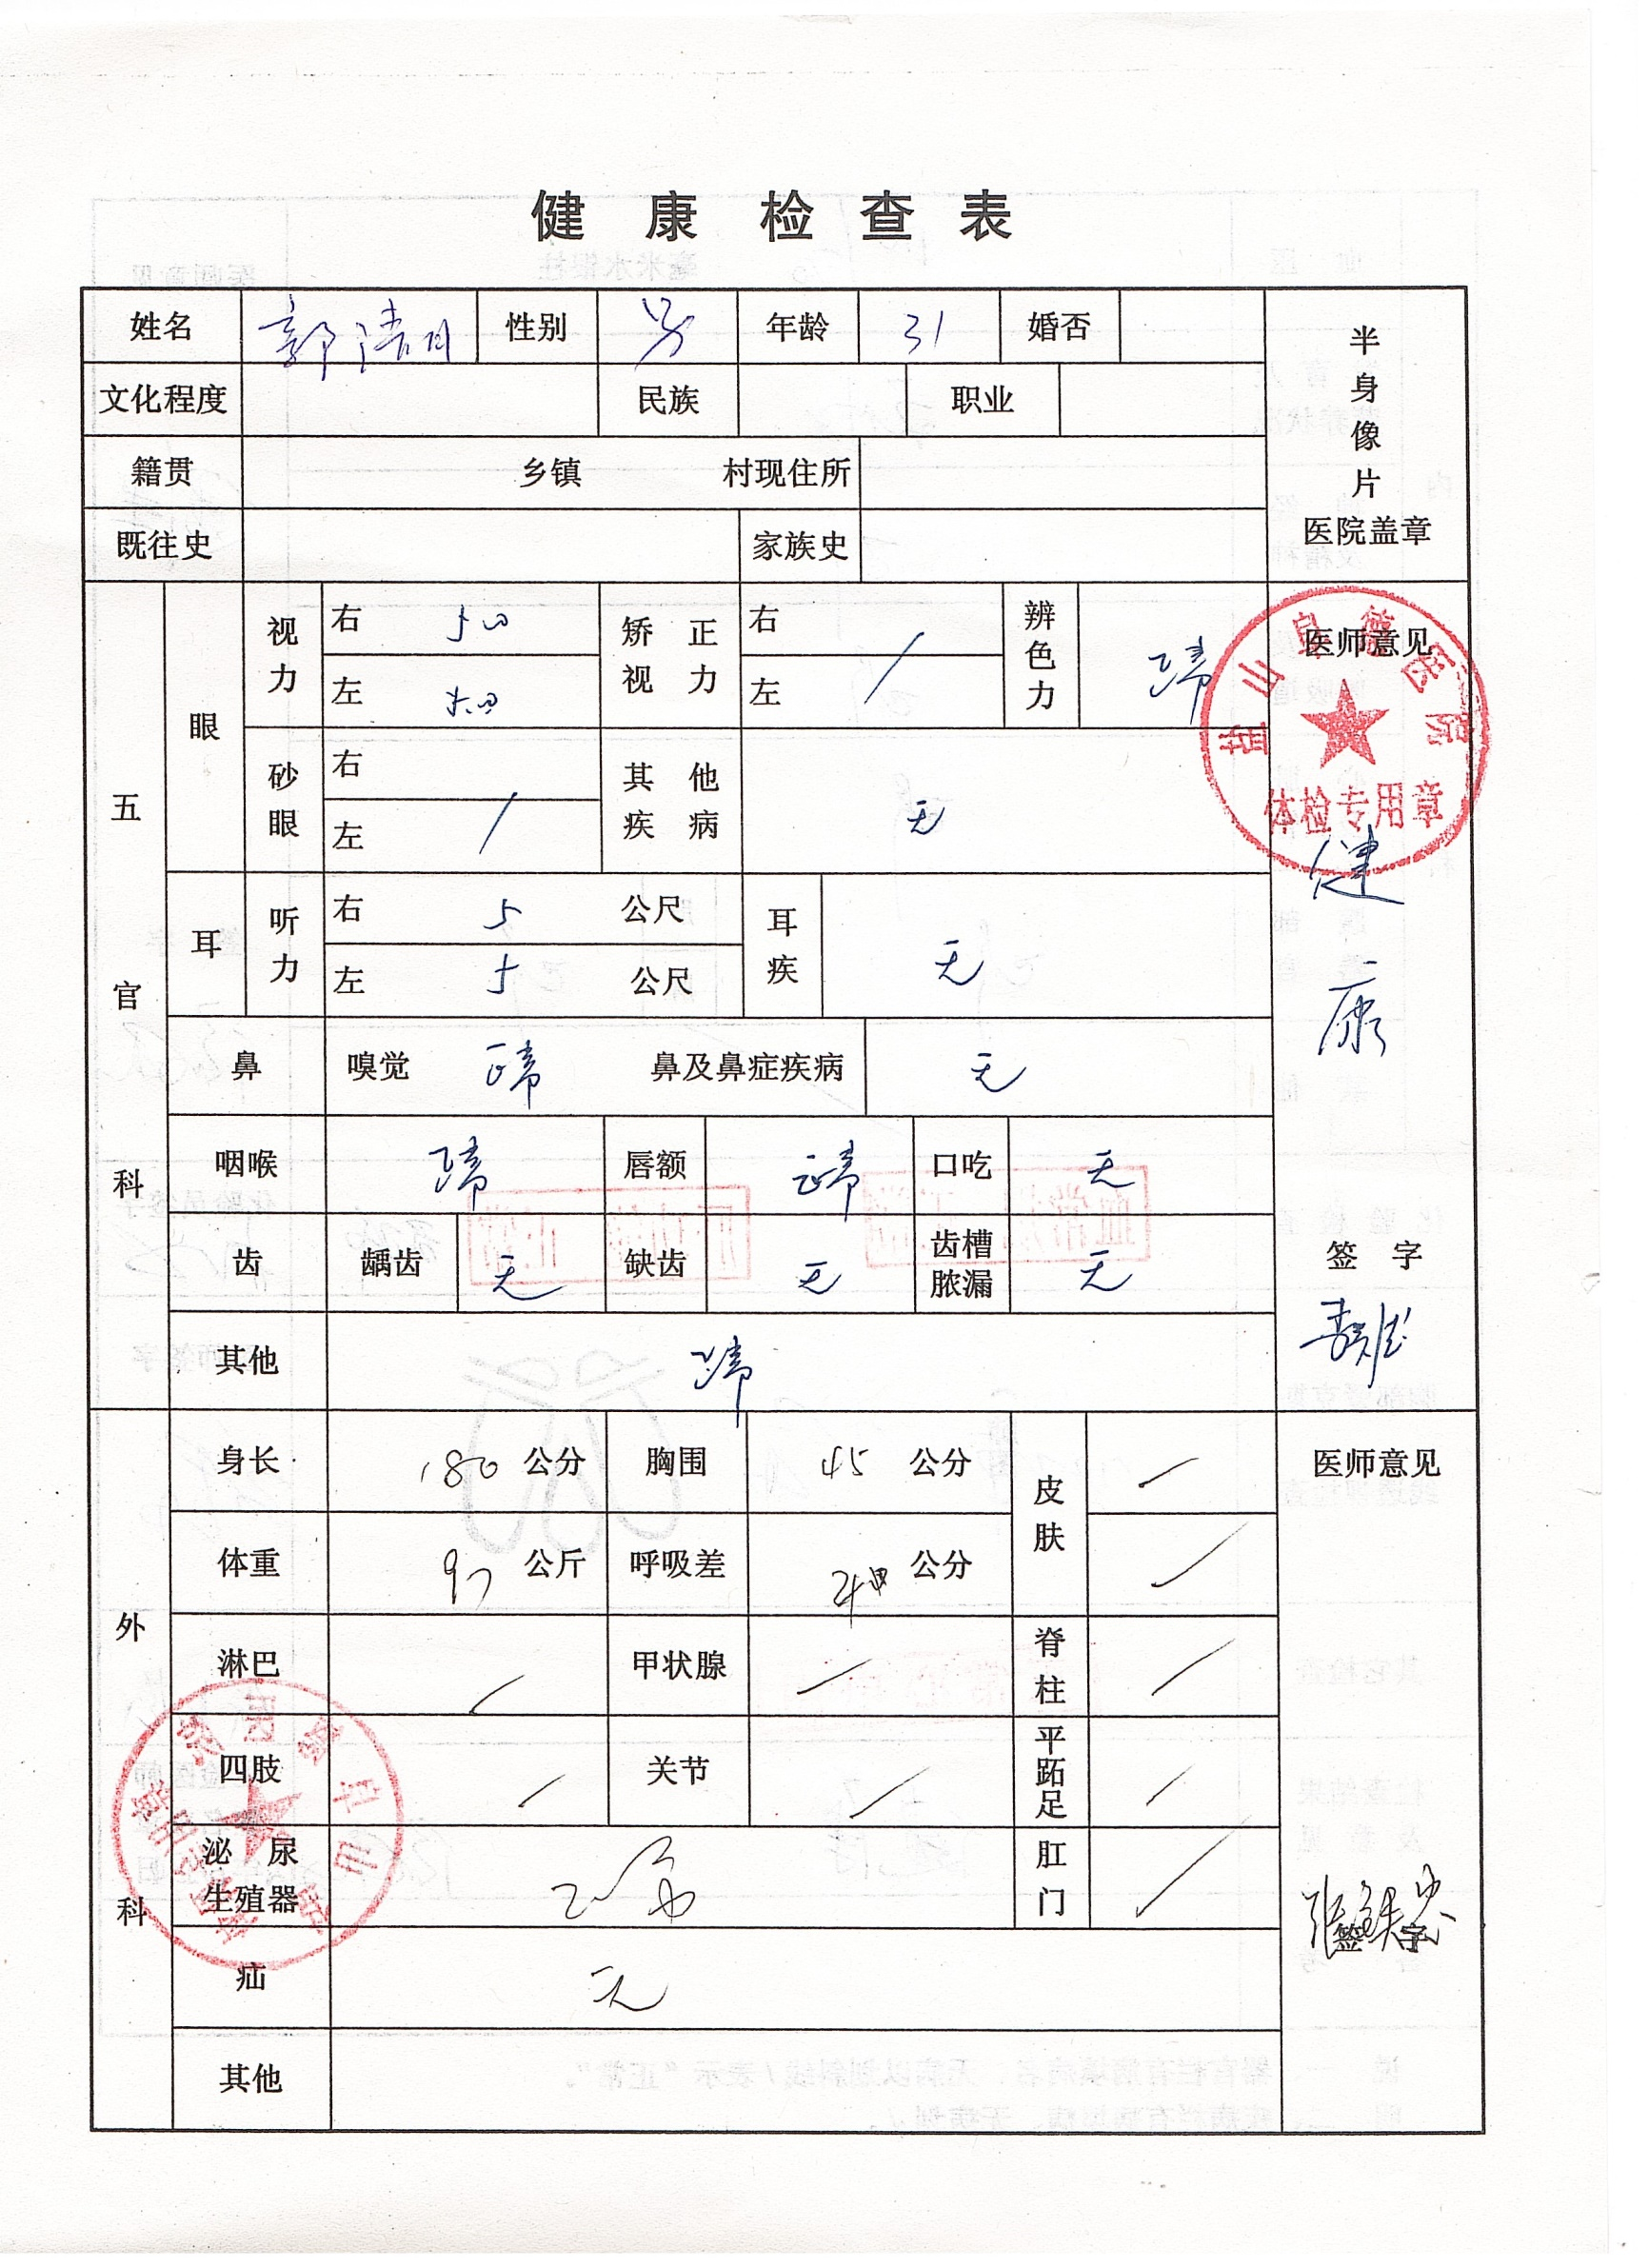 健康检查表
姓名 郭 性别 男 年龄 31 婚否
半身像片
医院盖章
文化程度 民族 职业
籍贯 乡镇 村现住所
既往史 家族史
五官科
眼
视力 右 5.0 矫正视力 右 / 辨色力 正常
左 5.0 左
医师意见
砂眼 右 其他疾病 无
左 /
体检专用章
健康
耳 听力 右 5 公尺 耳疾 无
左 5 公尺
鼻 嗅觉 正常 鼻及鼻症疾病 无
咽喉 正常 唇额 正常 口吃 无
齿 龋齿 无 缺齿 无 齿槽脓漏 无
签字
其他 正常
外科
身长 180 公分 胸围 公分 皮肤 /
医师意见
体重 97 公斤 呼吸差 公分 /
淋巴 / 甲状腺 / 脊柱 /
四肢 / 关节 / 平跖足 /
泌尿生殖器 正常 肛门 /
签字
疝 无
其他